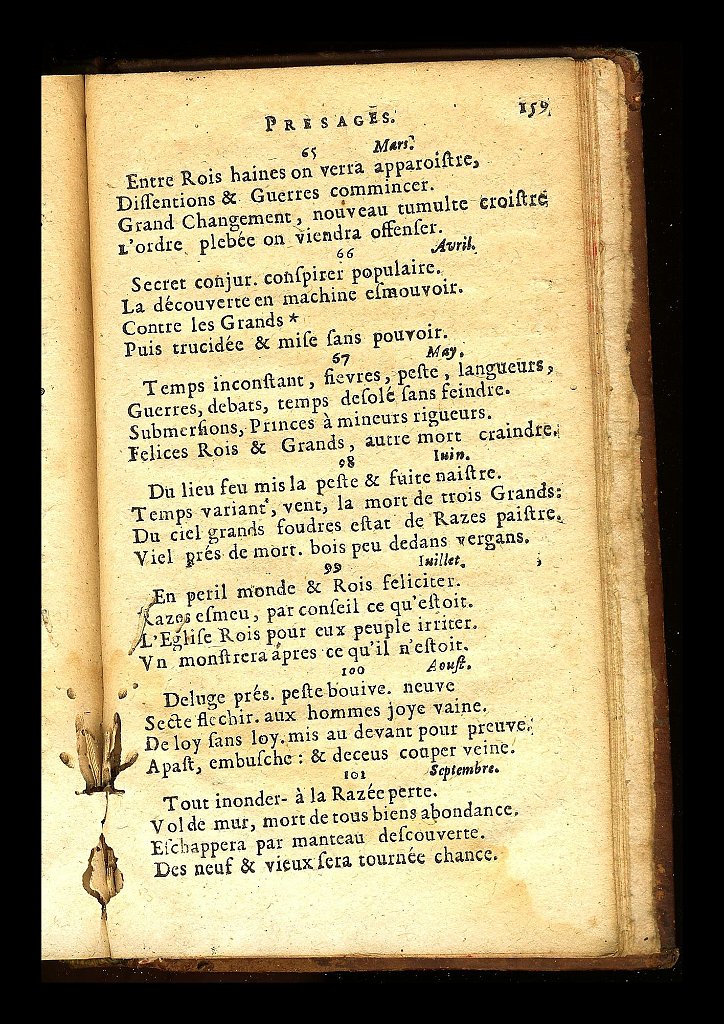 PRESAGES. 159
65 Mars.
Entre Rois haines on verra apparoiſtre,
Diſſentions & Guerres commincer.
Grand Changement, nouveau tumulte croiſtre
L'ordre plebée on viendra offenſer.
66 Avril.
Secret conjur. conſpirer populaire.
La découverte en machine eſmouvoir.
Contre les Grands *
Puis trucidée & miſe ſans pouvoir.
67 May.
Temps inconſtant, fievres, peſte, langueurs,
Guerres, debats, temps deſolé ſans feindre.
Submerſions, Princes à mineurs rigueurs.
Felices Rois & Grands, autre mort craindre.
98 Iuin.
Du lieu feu mis la peſte & fuite naiſtre.
Temps variant, vent, la mort de trois Grands:
Du ciel grands foudres eſtat de Razes paiſtre.
Viel prés de mort. bois peu dedans vergans.
99 Iuillet.
En peril monde & Rois feliciter.
Razes eſmeu, par conſeil ce qu'eſtoit.
L'Egliſe Rois pour eux peuple irriter.
Vn monſtrera ápres ce qu'il n'eſtoit.
100 Aouſt.
Deluge prés. peſte bouive. neuve
Secte flechir. aux hommes joye vaine.
De loy ſans loy. mis au devant pour preuve.
Apaſt, embuſche : & deceus couper veine.
101 Septembre.
Tout inonder- à la Razée perte.
Vol de mur, mort de tous biens abondance.
Eſchappera par manteau deſcouverte.
Des neuf & vieux ſera tournée chance.